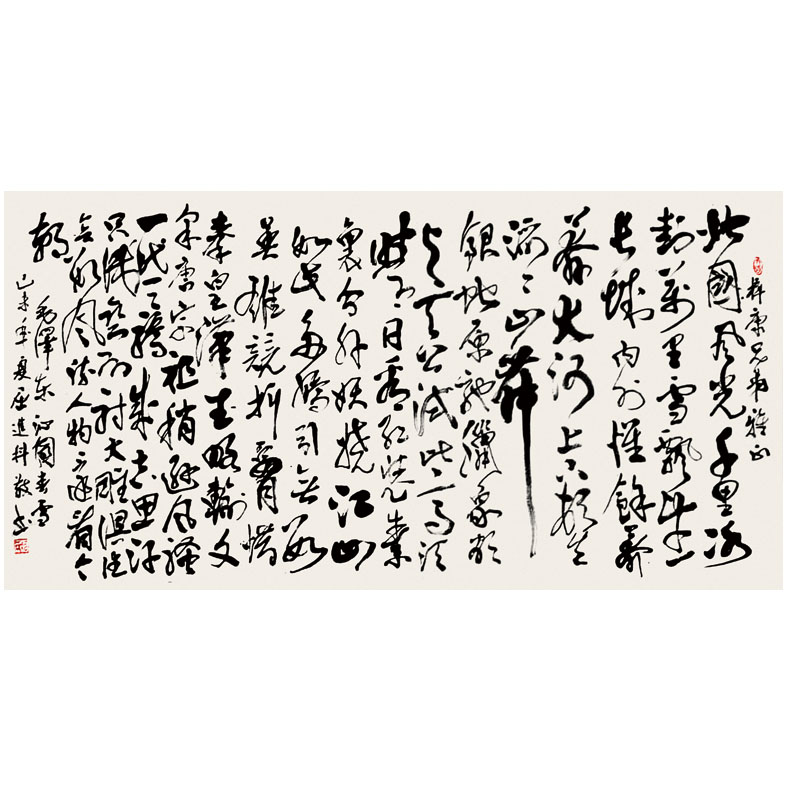 康兄弟雅正
北國风光千里冰
封萬里雪飘望
长城内外惟餘莽
莽大河上下顿失
滔滔山舞
银蛇原驰蜡象欲
与天公试比高须
晴日看红装素
裹分外妖娆江山
如此多娇引无数
英雄竞折腰惜
秦皇漢武略输文
采唐宗祖稍逊风骚
一代天骄成吉思汗
只识弯弓射大雕俱往
矣数风流人物还看今
朝
毛澤东沁園春雪
己未年夏屈進科敬书